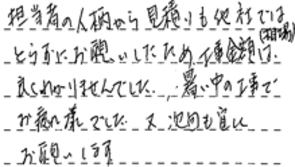 担当者の人柄から見積りも他社では
とらずにお願いしたため、工事金額は(相場)
良くわかりませんでした。暑い中の工事で
お疲れ様でした 又次回も宜しく
お願いします